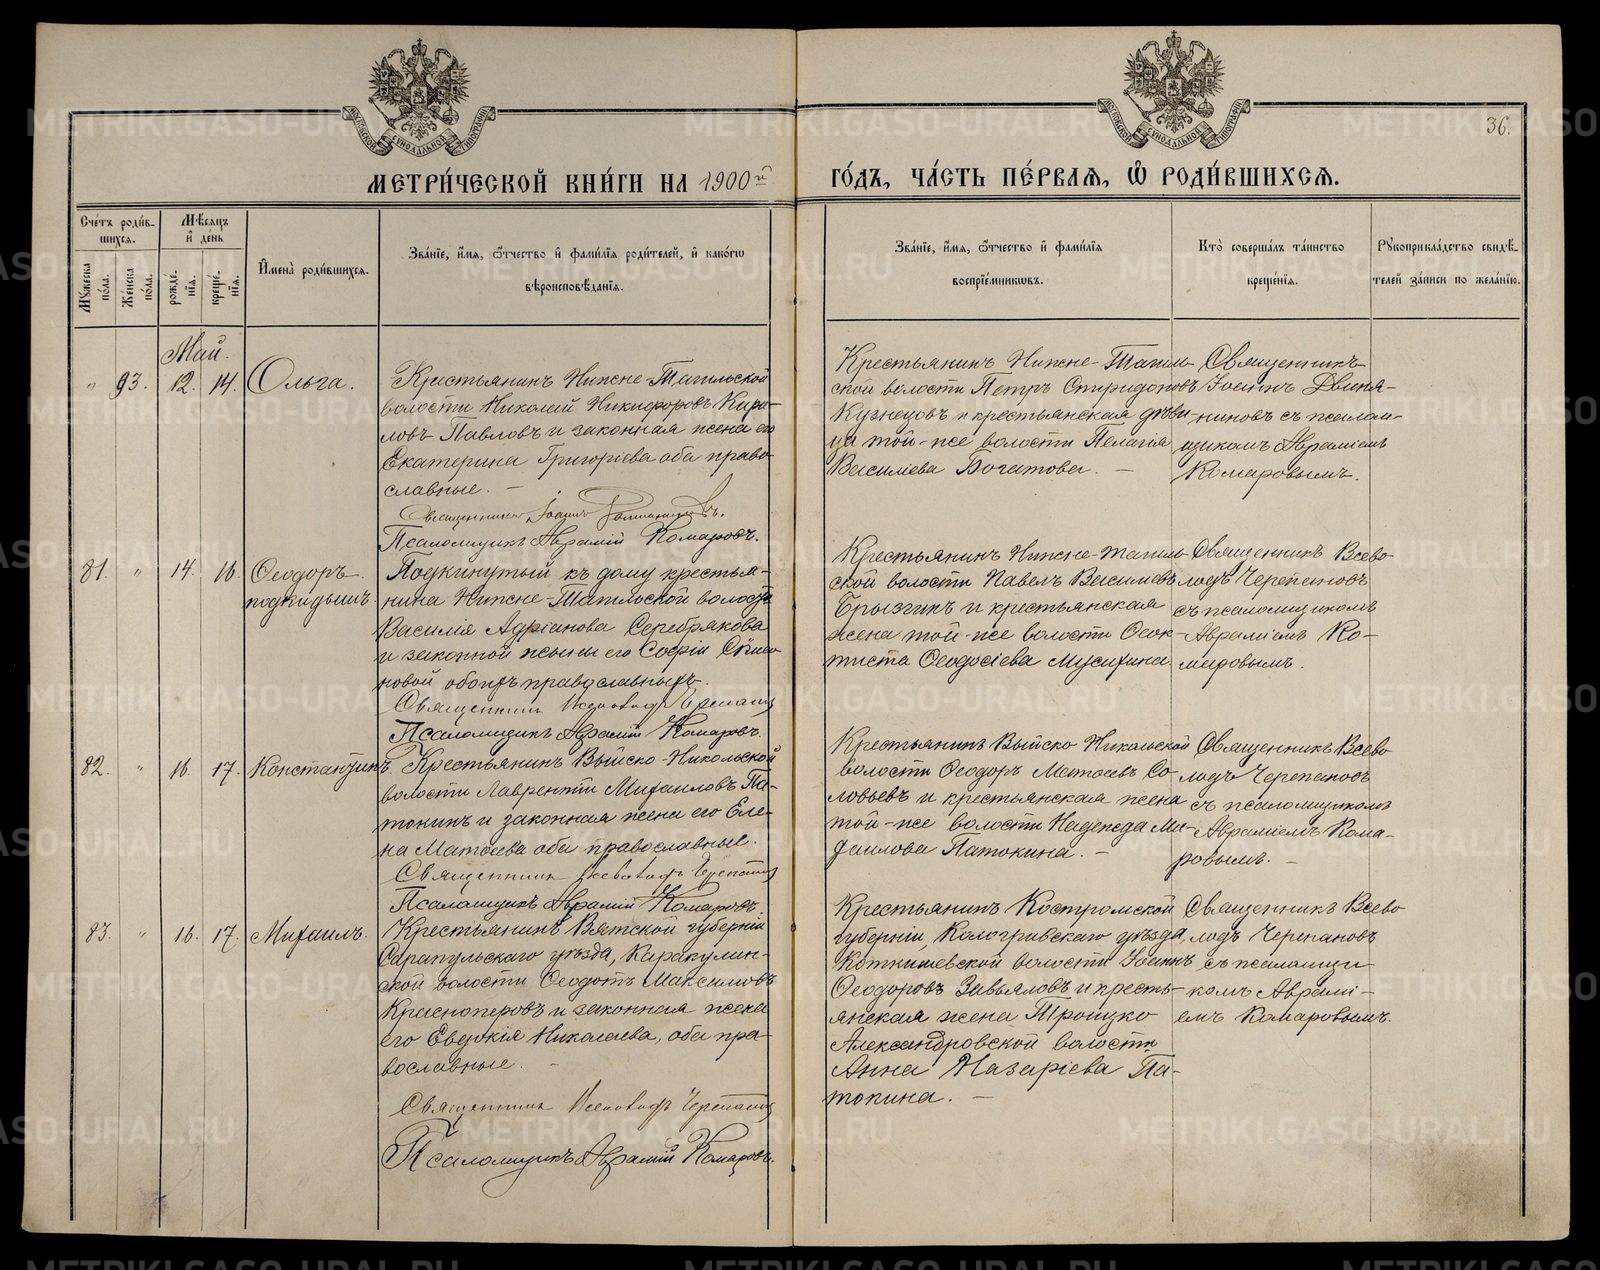 36.
МЕТРИ́ЧЕСКОЙ КНИ́ГИ НА 1900й ГО́ДЪ, ЧА́СТЬ ПЕ́РВАѦ, Ѡ РОДИ́ВШИХСѦ.
МОСКОВСКОЙ СѴНОДАЛЬНОЙ ТИПОГРАФІИ
МОСКОВСКОЙ СѴНОДАЛЬНОЙ ТИПОГРАФІИ
Сче́тъ роди́в-
шихсѧ.
Мꙋ́жеска
по́ла.
Же́нска
по́ла.
Мѣ́сѧцъ
и де́нь
рожде́-
нїѧ.
креще́-
нїѧ.
И҆мена̀ роди́вшихсѧ.
Зва́нїе, и҆́мѧ, ѻ҆́тчество и҆ фами́лїѧ роди́телей, и҆ како́гѡ
вѣроисповѣ́данїѧ.
Зва́нїе, и҆́мѧ, ѻ҆́тчество и҆ фами́лїѧ
воспрїе́мникѡвъ.
Кто̀ соверша́лъ та́инство
креще́нїѧ.
Рꙋкоприкла́дство свидѣ́-
телей за́писи по жела́нїю.
Май.
" 93. 12. 14. Ольга.
Крестьянинъ Нижне-Тагильской
волости Николай Никифоровъ Кири-
ловъ Павловъ и законная жена его
Екатерина Григоріева оба право-
славные. —
Священникъ Іоаннъ
Псаломщикъ Аврамій Комаровъ.
Крестьянинъ Нижне-Тагиль-
ской волости Петръ Спиридоновъ
Кузнецовъ и крестьянская дѣви-
ца той-же волости Пелагія
Василиева Богатова. —
Священникъ
Іоаннъ Двиня-
ниновъ съ псалом-
щикомъ Авраміемъ
Комаровымъ.
81. " 14. 16. Ѳеодоръ
подкидышъ.
Подкинутый къ дому крестья-
нина Нижне-Тагильской волости
Василія Адріанова Серебрякова
и законной жены его Софіи Симео-
новой обоихъ православныхъ.
Священникъ Всеволодъ Черепановъ
Псаломщикъ Аврамій Комаровъ.
Крестьянинъ Нижне-Тагиль-
ской волости Павелъ Василиевъ
Брызгинъ и крестьянская
жена той-же волости Ѳеок-
тиста Ѳеодосіева Мусихина
Священникъ Всево-
лодъ Черепановъ
съ псаломщикомъ
Авраміемъ Ко-
маровымъ.
82. " 16. 17. Константинъ.
Крестьянинъ Выйско-Никольской
волости Лаврентій Михаиловъ Па-
токинъ и законная жена его Еле-
на Матѳеева оба православные.
Священникъ Всеволодъ Черепановъ
Псаломщикъ Аврамій Комаровъ.
Крестьянинъ Выйско Никольской
волости Ѳеодоръ Матѳеевъ Со-
ловьевъ и крестьянская жена
той-же волости Надежда Ми-
хаилова Патокина. —
Священникъ Всево-
лодъ Черепановъ
съ псаломщикомъ
Авраміемъ Кома-
ровымъ. —
83. " 16. 17. Михаилъ.
Крестьянинъ Вятской губерніи
Сарапульскаго уѣзда, Каракулин-
ской волости Ѳеодотъ Максимовъ
Красноперовъ и законная жена
его Евдокія Николаева, оба пра-
вославные. —
Священникъ Всеволодъ Черепановъ
Псаломщикъ Аврамій Комаровъ.
Крестьянинъ Костромской
губерніи, Кологривскаго уѣзда,
Коткишевской волости Іоаннъ
Ѳеодоровъ Завьяловъ и кресть-
янская жена Троицко
Александровской волости
Анна Назаріева Па-
токина. —
Священникъ Всево-
лодъ Черепановъ
съ псаломщи-
комъ Аврамі-
емъ Комаровымъ.
METRIKI.GASO-URAL.RU